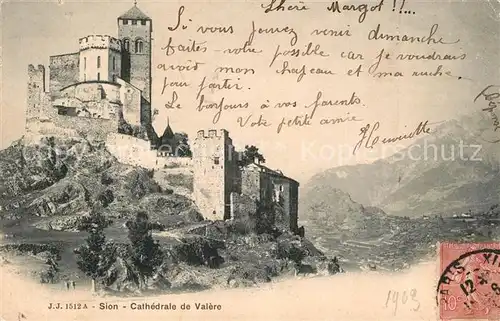 Chère Margot !!...
Si vous pouvez venir dimanche
faites-votre possible car je voudrais
avoir mon chapeau et ma ruche.
pour partir.
Le bonjour à vos parents.
Votre petite amie
Henriette
J.J. 1512 A - Sion - Cathédrale de Valère
1903
PARIS XI
12
10